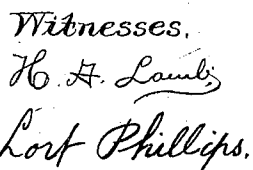 Witnesses.
H. A. Lamb.
Lort Phillips.